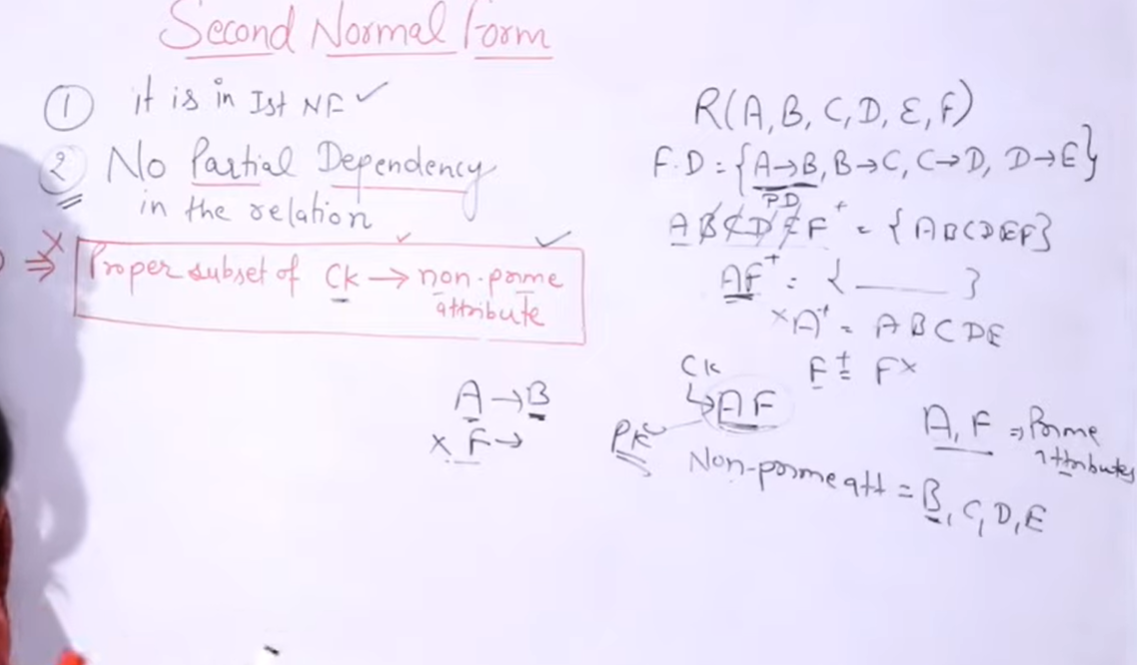 Second Normal Form
① it is in Ist NF ✓
② No Partial Dependency
in the relation
✗ ⇒ Proper subset of Ck → non-prime
attribute
A → B
× F →
R(A, B, C, D, E, F)
F.D = {A→B, B→C, C→D, D→E}
PD
ABCDEF⁺ = {ABCDEF}
AF⁺ = { ______ }
×A⁺ = ABCDE
F⁺ = F×
Ck
AF
PK
A, F ⇒ Prime
attributes
Non-prime att = B, C, D, E